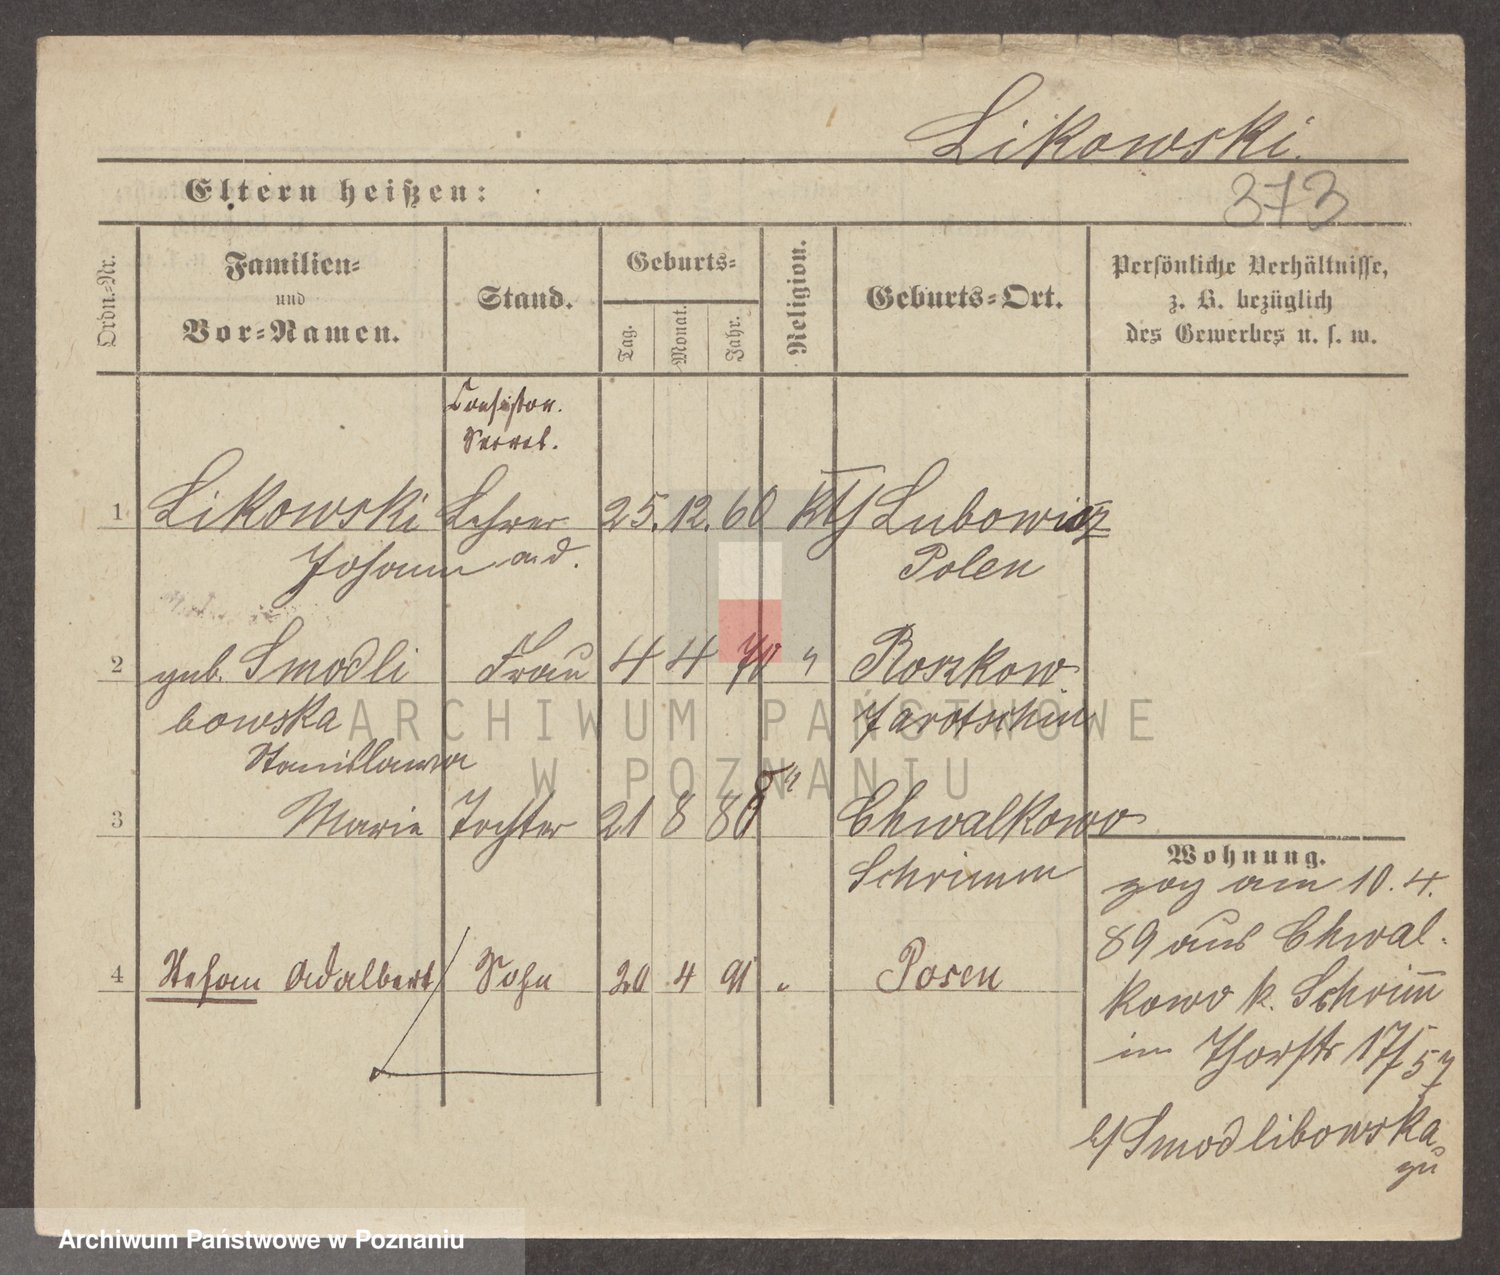 Likowski.
Eltern heißen:
373
Ordn.-Nr.
Familien-
und
Vor-Namen.
Stand.
Geburts-
Tag.
Monat.
Jahr.
Religion.
Geburts-Ort.
Persönliche Verhältnisse,
z. B. bezüglich
des Gewerbes u. s. w.
Consistor.
Secret.
1 Likowski Lehrer 25. 12. 60 kth Lubowicz
Johann a. d. Polen
2 geb. Smodli Frau 4 4 70 " Roszkow
bowska Jarotschin
Stanislawa
3 Marie Tochter 21 8 88 " Chwalkowo
Schrimm
Wohnung.
zog am 10. 4.
89 aus Chwal-
kowo k. Schrimm
in Thorstr 17/57
b/ Smodlibowska
zu
4 Stefan Adalbert Sohn 20 4 91 " Posen
ARCHIWUM PAŃSTWOWE
W POZNANIU
Archiwum Państwowe w Poznaniu